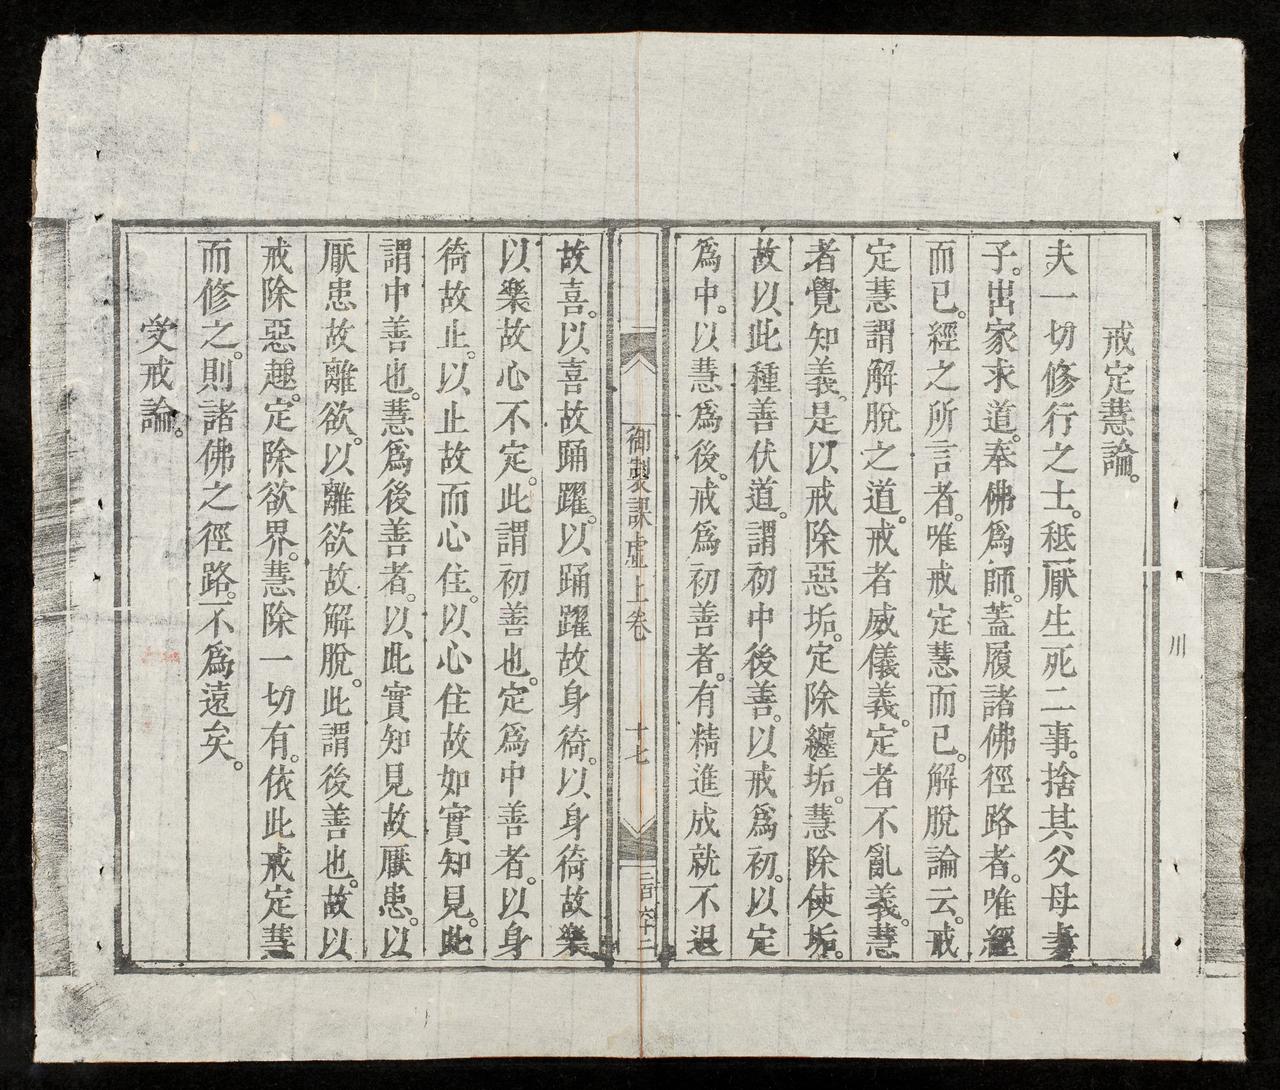 戒定慧論。
夫一切修行之士。秪厭生死二事。捨其父母妻
子。出家求道。奉佛爲師。蓋履諸佛徑路者。唯經
而已。經之所言者。唯戒定慧而已。解脫論云。戒
定慧謂解脫之道。戒者威儀義。定者不亂義。慧
者覺知義。是以戒除惡垢。定除纏垢。慧除使垢。
故以此種善伏道。謂初中後善。以戒爲初。以定
爲中。以慧爲後。戒爲初善者。有精進成就不退
御製課虛上卷
十七
三百六十二
故喜。以喜故踊躍。以踊躍故身猗。以身猗故樂
以樂故心不定。此謂初善也。定爲中善者。以身
猗故止。以止故而心住。以心住故如實知見。此
謂中善也。慧爲後善者。以此實知見故厭患。以
厭患故離欲。以離欲故解脫。此謂後善也。故以
戒除惡趣。定除欲界。慧除一切有。依此戒定慧
而修之。則諸佛之徑路。不爲遠矣。
受戒論。